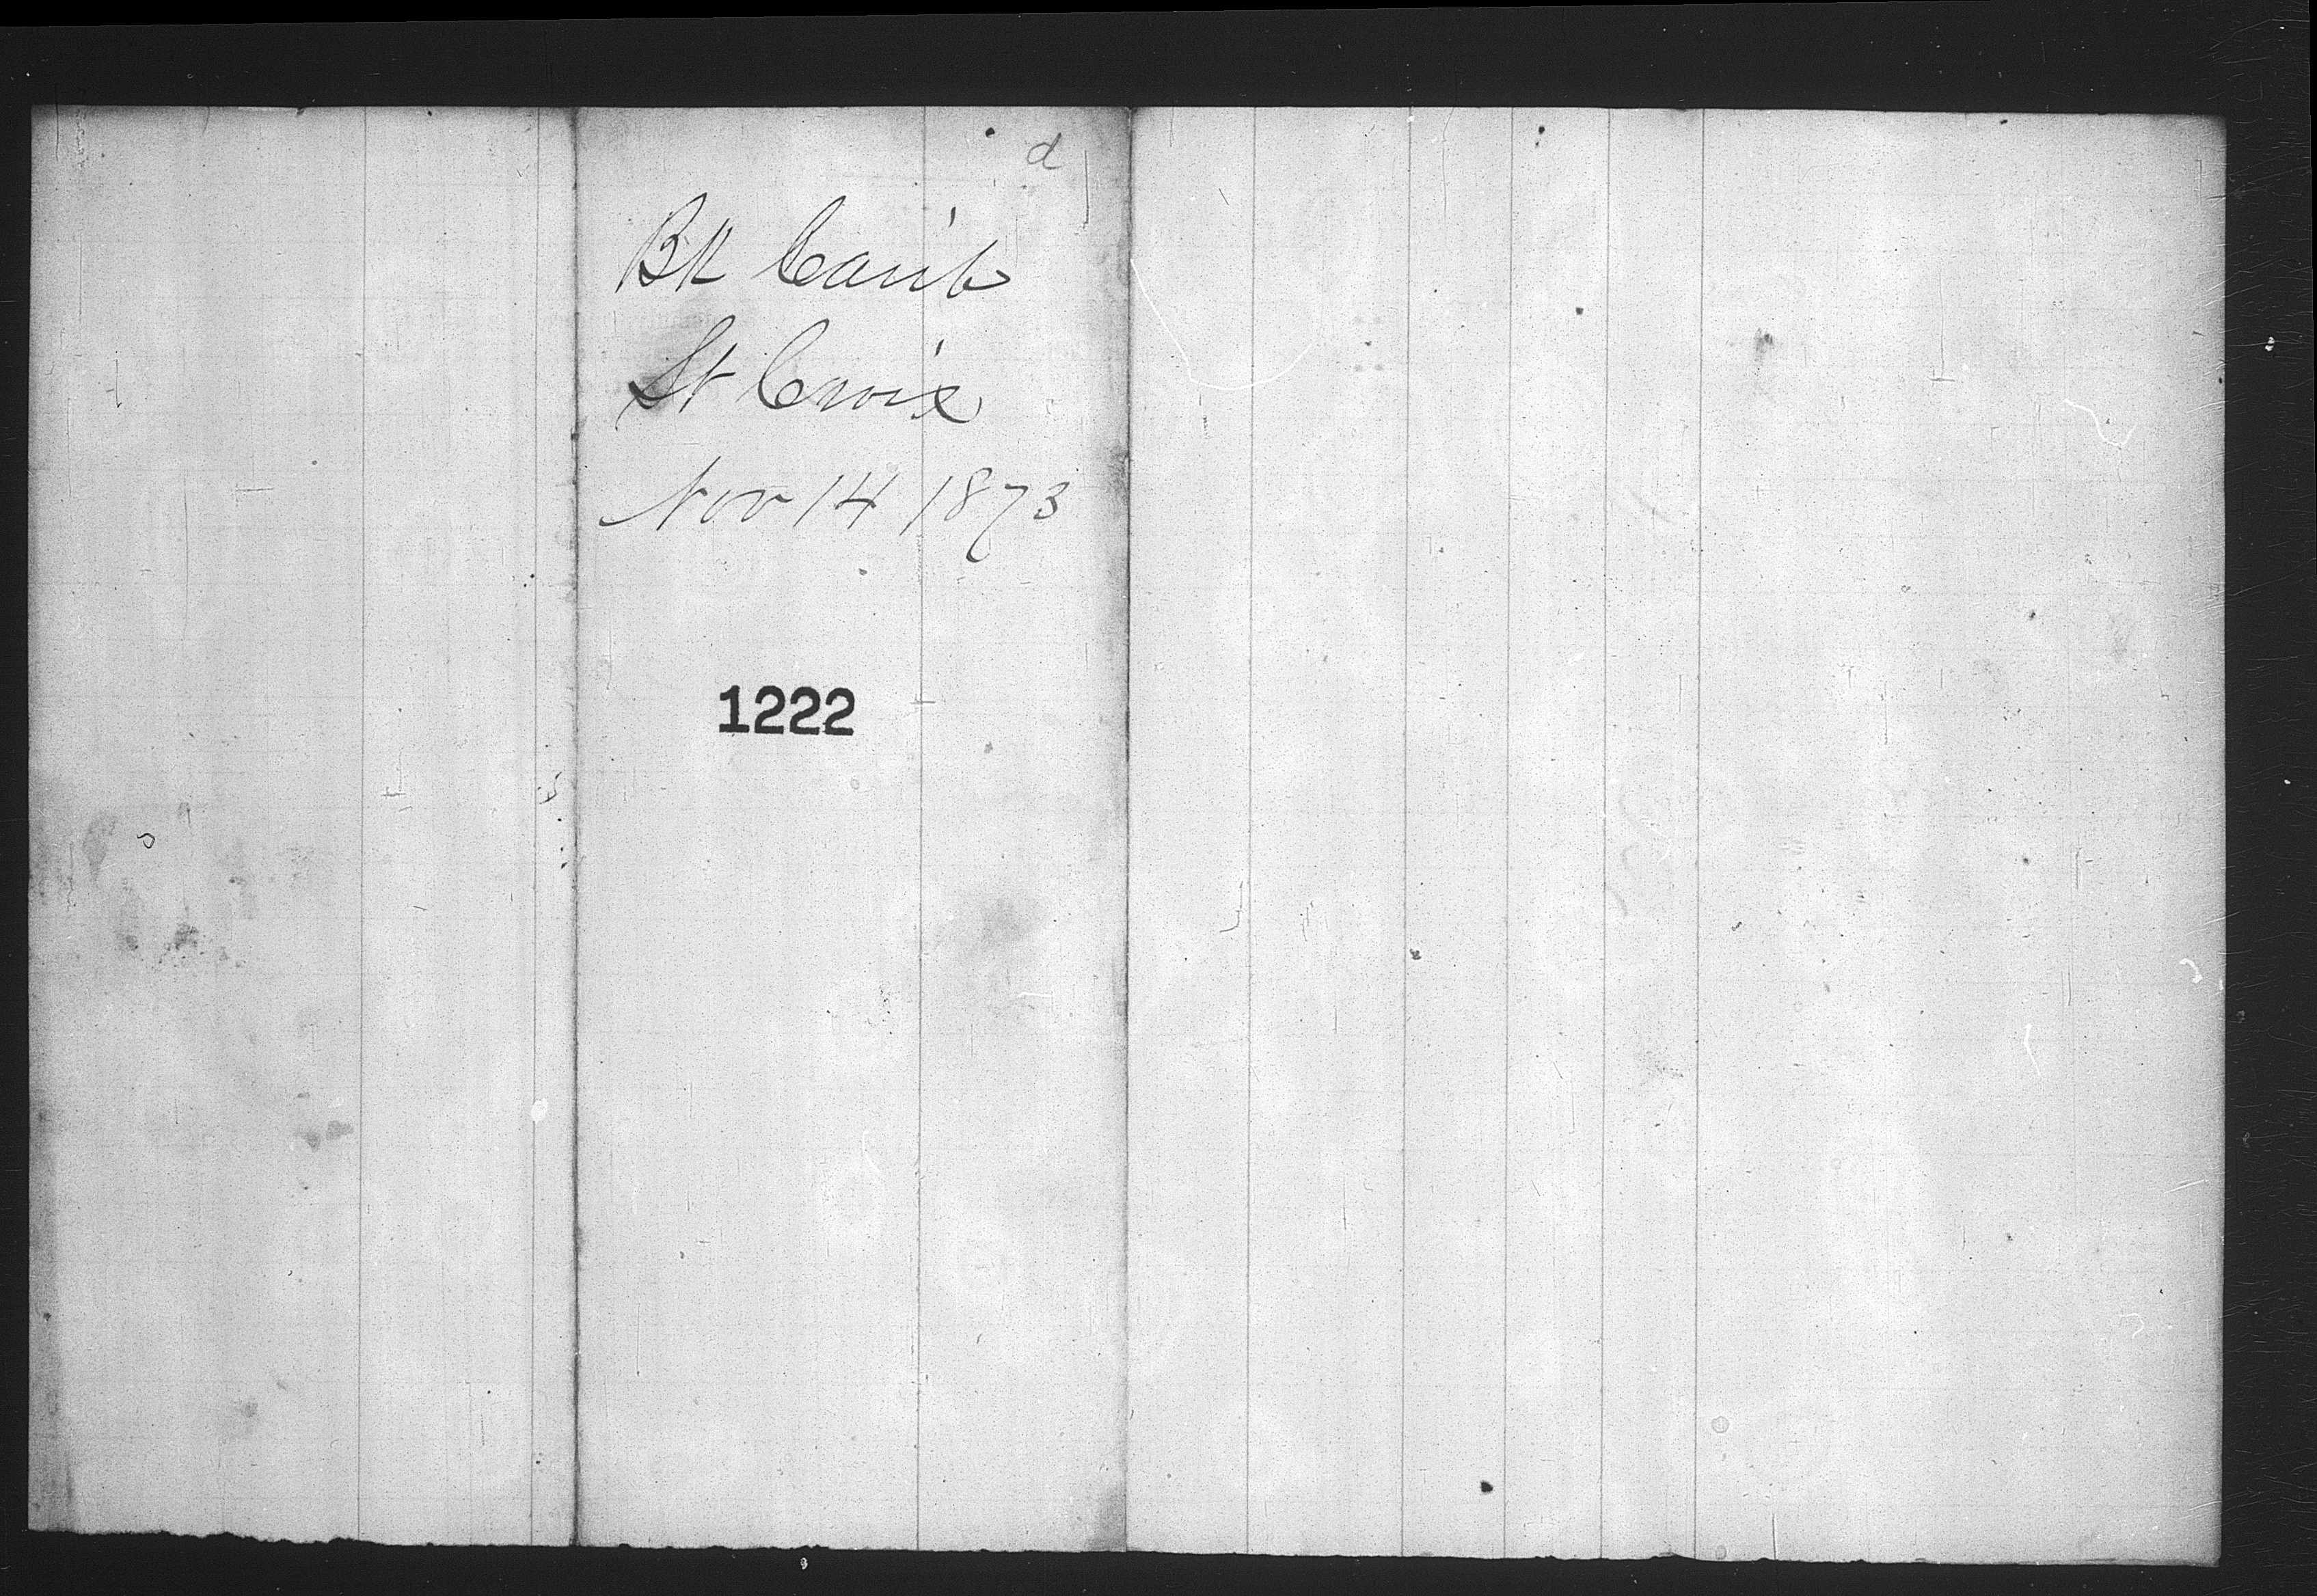 d
Bk Carib
St Croix
Nov 14 1873
1222